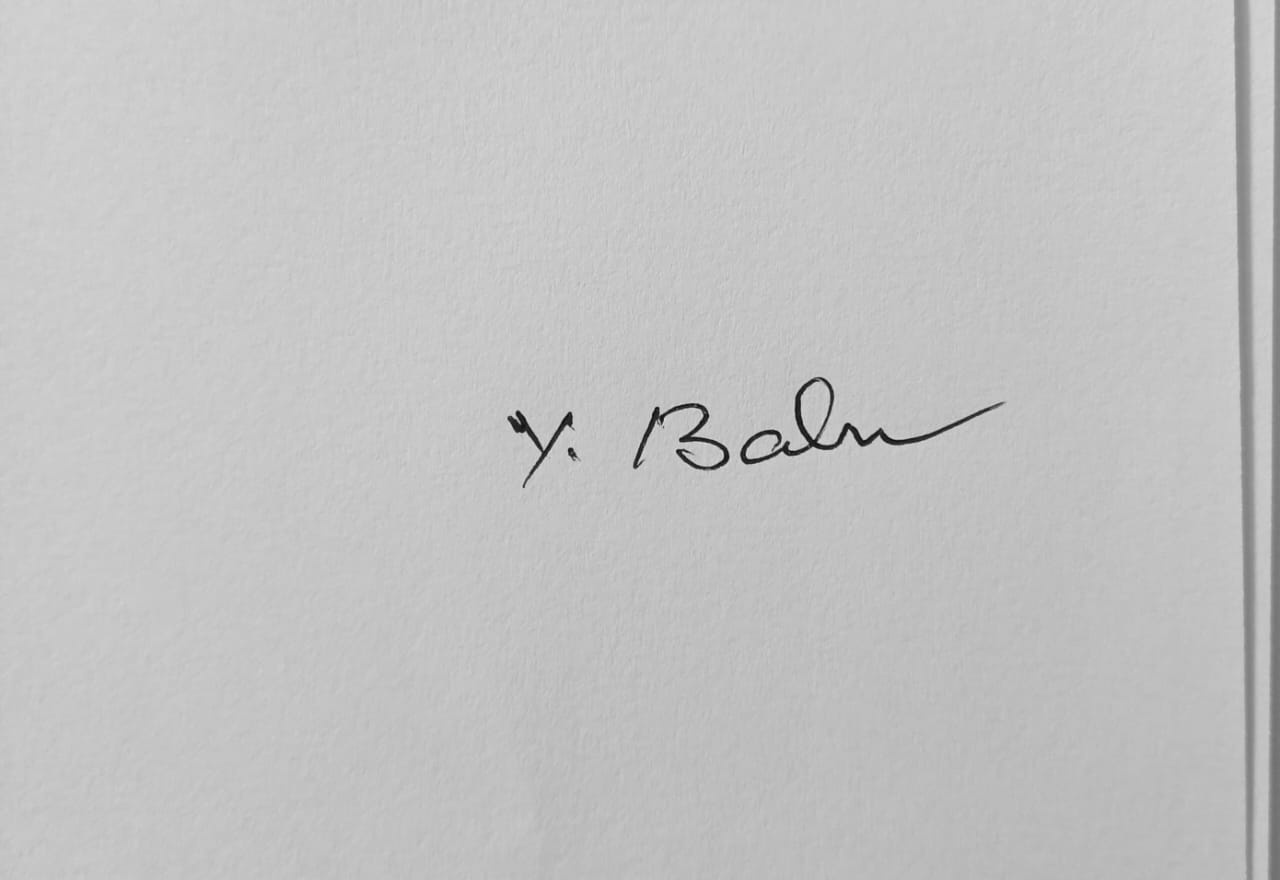 Y. Babu